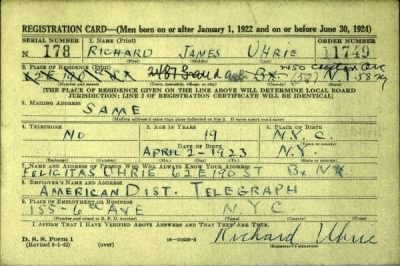 REGISTRATION CARD—(Men born on or after January 1, 1922 and on or before June 30, 1924)
SERIAL NUMBER 1. NAME (Print) ORDER NUMBER
N 178 RICHARD JAMES UHRIE 11749
2. PLACE OF RESIDENCE (Print)
2487 Grand ave Bx. (58) N.Y.
[THE PLACE OF RESIDENCE GIVEN ON THE LINE ABOVE WILL DETERMINE LOCAL BOARD
JURISDICTION; LINE 2 OF REGISTRATION CERTIFICATE WILL BE IDENTICAL]
3. MAILING ADDRESS
SAME
4. TELEPHONE 5. AGE IN YEARS 6. PLACE OF BIRTH
NO 19 N.Y.C.
DATE OF BIRTH
APRIL 2-1923 N.Y.
7. NAME AND ADDRESS OF PERSON WHO WILL ALWAYS KNOW YOUR ADDRESS
FELICITAS UHRIE 62 E 190 ST Bx NY
8. EMPLOYER'S NAME AND ADDRESS
AMERICAN DIST. TELEGRAPH
9. PLACE OF EMPLOYMENT OR BUSINESS
155-6th AVE N Y C
I AFFIRM THAT I HAVE VERIFIED ABOVE ANSWERS AND THAT THEY ARE TRUE.
D. S. S. Form 1 (over) Richard Uhrie